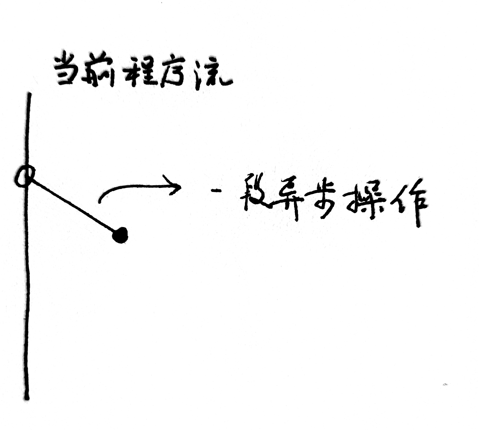 当前程序流
一段异步操作